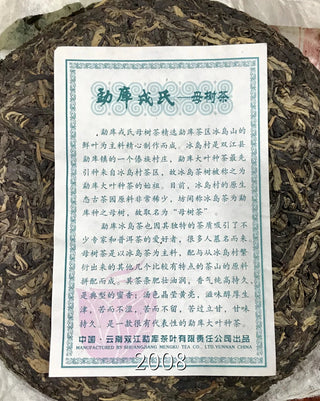 勐库戎氏 母树茶
勐库戎氏母树茶精选勐库茶区冰岛山的
鲜叶为主料精心制作而成。冰岛村是双江县
勐库镇的一个傣族村庄,勐库大叶种茶最先
引种来自冰岛村茶区,故冰岛茶树被称之为
勐库大叶种茶的始祖。目前,冰岛村的原生
态古茶园原料非常稀少,坊间称冰岛茶为勐
库种之母树,故取名为“母树茶”
勐库冰岛茶也因其独特的茶质吸引了不
少专家和普洱茶的爱好者,很多人慕名而来。
母树茶是以冰岛茶为主料,配与从冰岛村繁
衍出来的其他几个比较有特点的茶山的原料
拼配而成。其茶条肥壮油润,香气纯高持久,
是典型的蜜香;汤色晶莹黄亮,滋味醇厚生
津,苦而不涩,苦而不留,苦过立甘,甘味
持久,是一款很有代表性的勐库大叶种茶。
中国·云南双江勐库茶叶有限责任公司出品
MANUFACTURED BY SHUANGJIANG MENGKU TEA CO., LTD.YUNNAN CHINA
2008